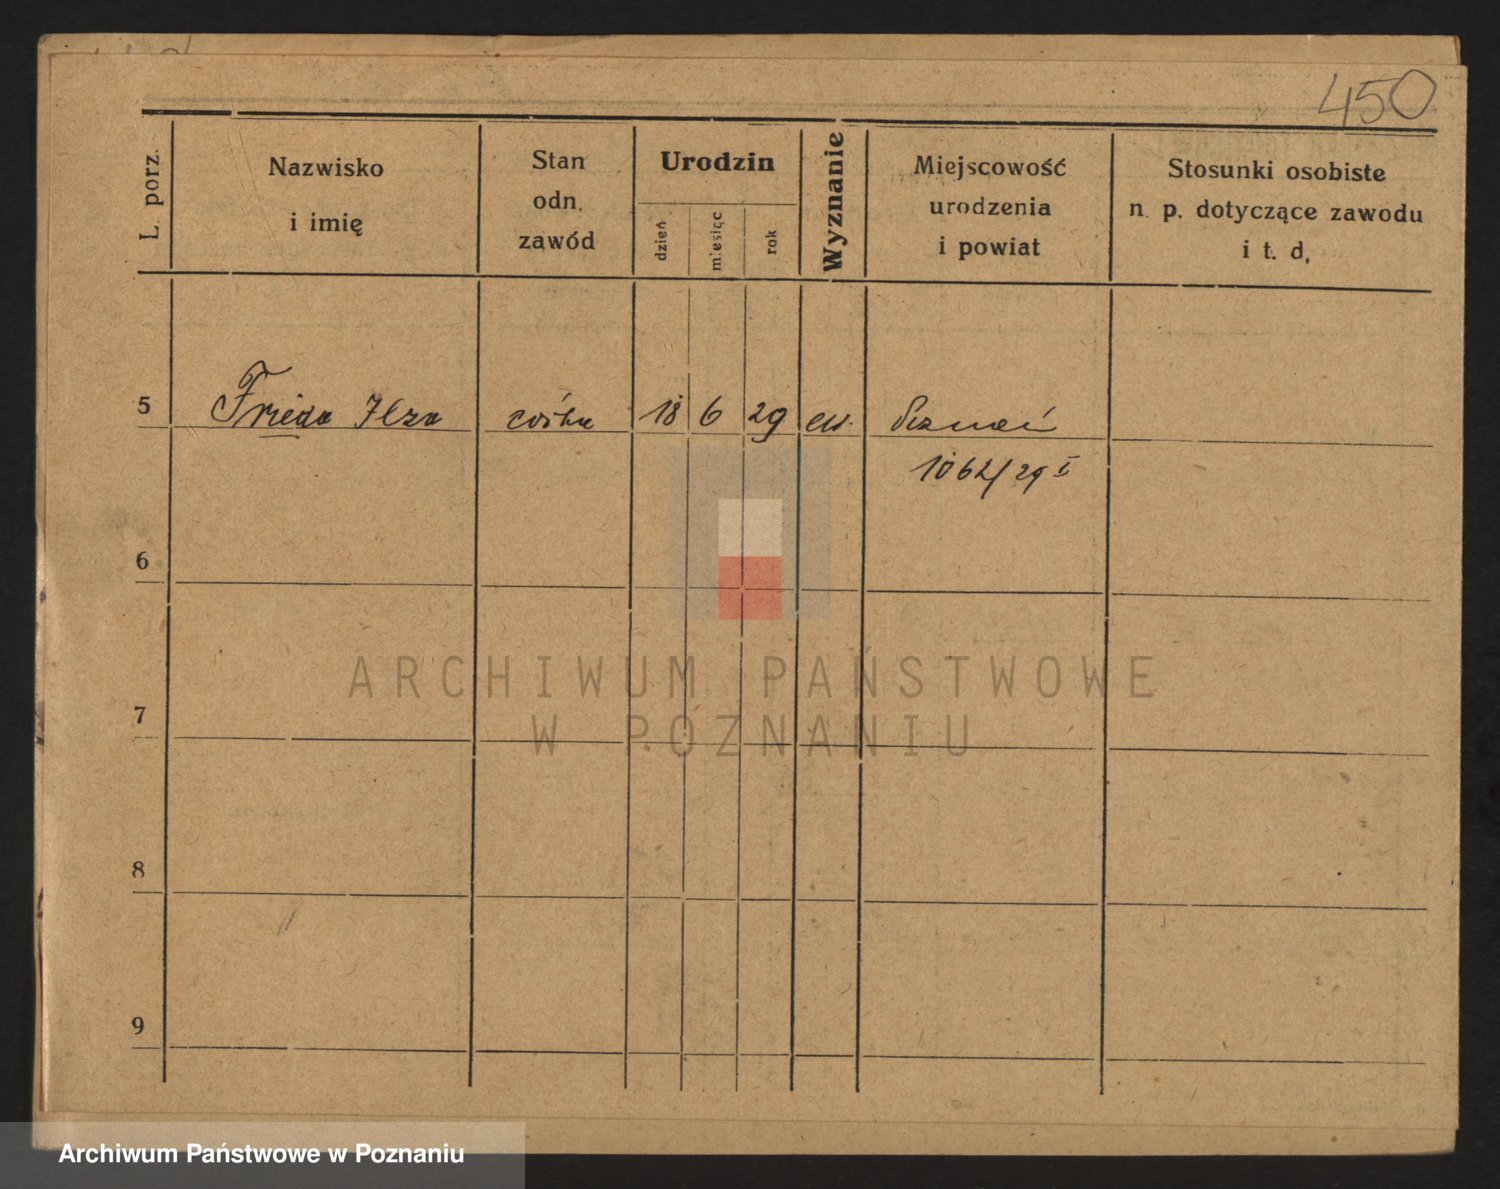 450
L. porz.
Nazwisko
i imię
Stan
odn.
zawód
Urodzin
dzień
miesiąc
rok
Wyznanie
Miejscowość
urodzenia
i powiat
Stosunki osobiste
n. p. dotyczące zawodu
i t. d,
5 Frieda Ilza córka 18 6 29 ew. Poznań
1062/29 I
6
7
8
9
ARCHIWUM PAŃSTWOWE
W POZNANIU
Archiwum Państwowe w Poznaniu